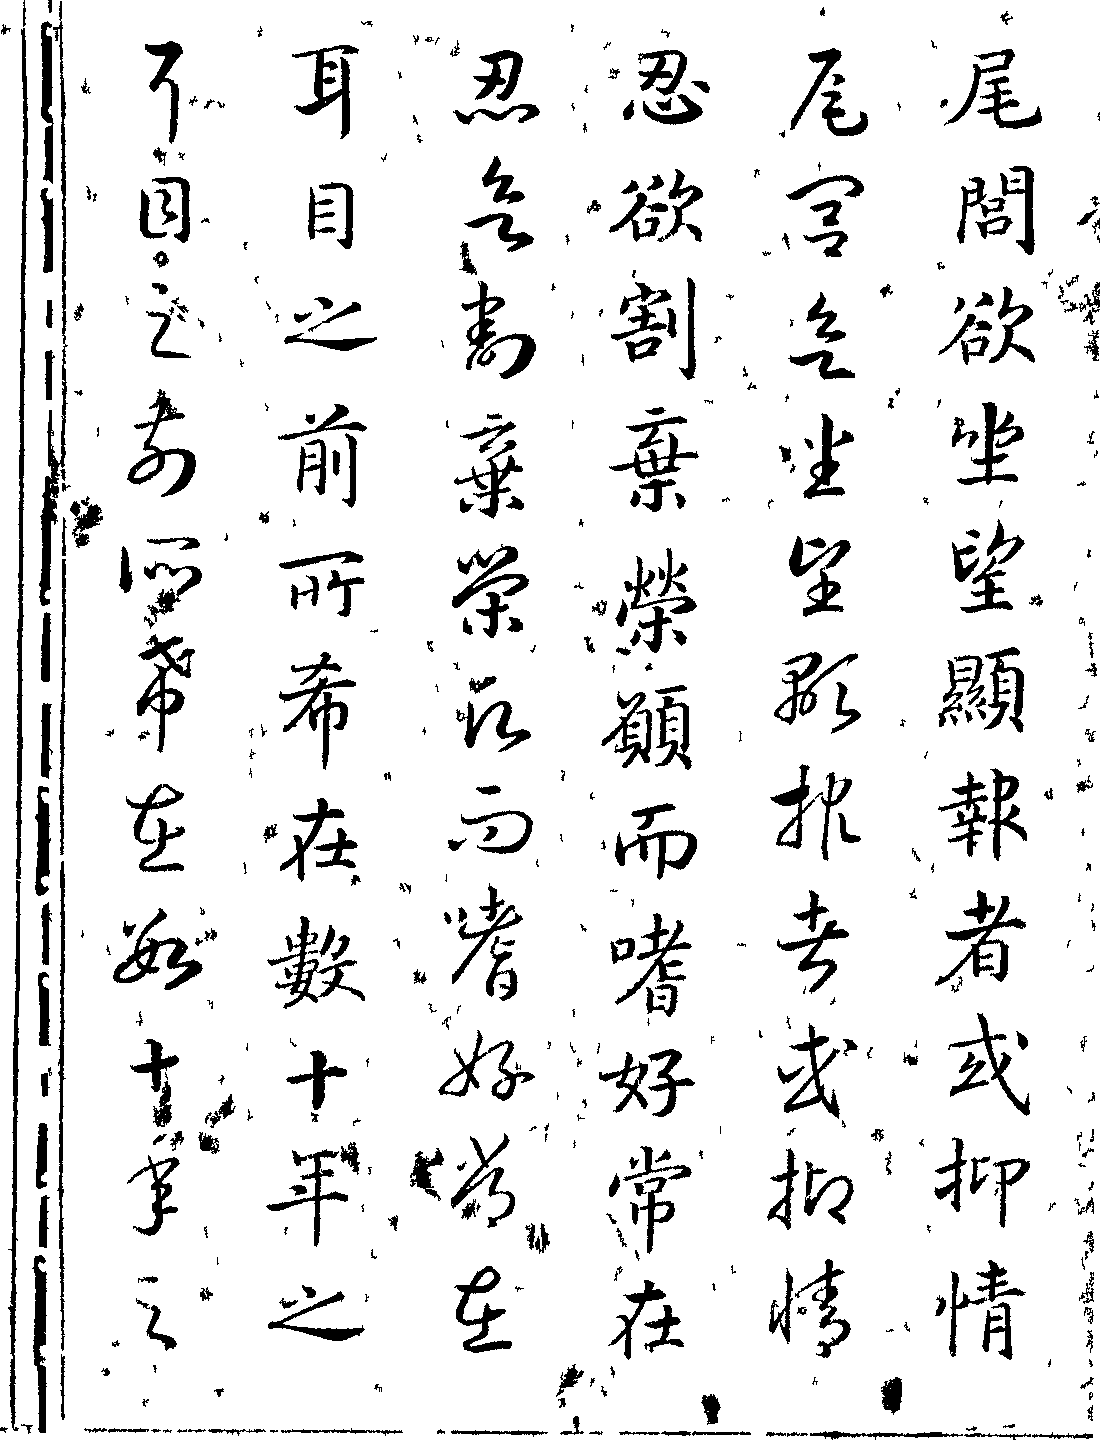 尾閭欲坐望顯報者或抑情
尾閭欲坐望顯報者或抑情
忍欲割棄榮願而嗜好常在
忍欲割棄榮願而嗜好常在
耳目之前所希在數十年之
耳目之前所希在數十年之